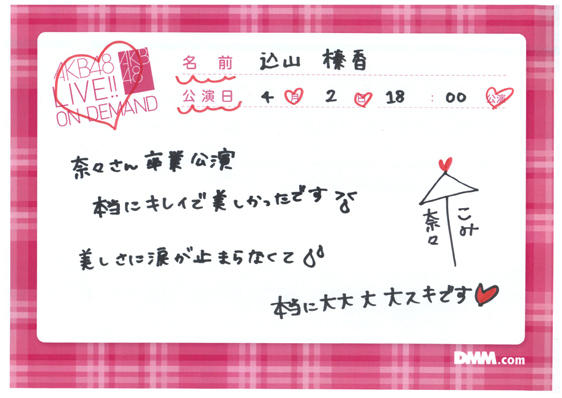 AKB48
LIVE!!
ON DEMAND
AKB
48
名前 込山 榛香
公演日 4月 2日 18:00 公演
奈々さん卒業公演
本当にキレイで美しかったです
美しさに涙が止まらなくて
こみ
奈々
本当に大大大大スキです
DMM.com